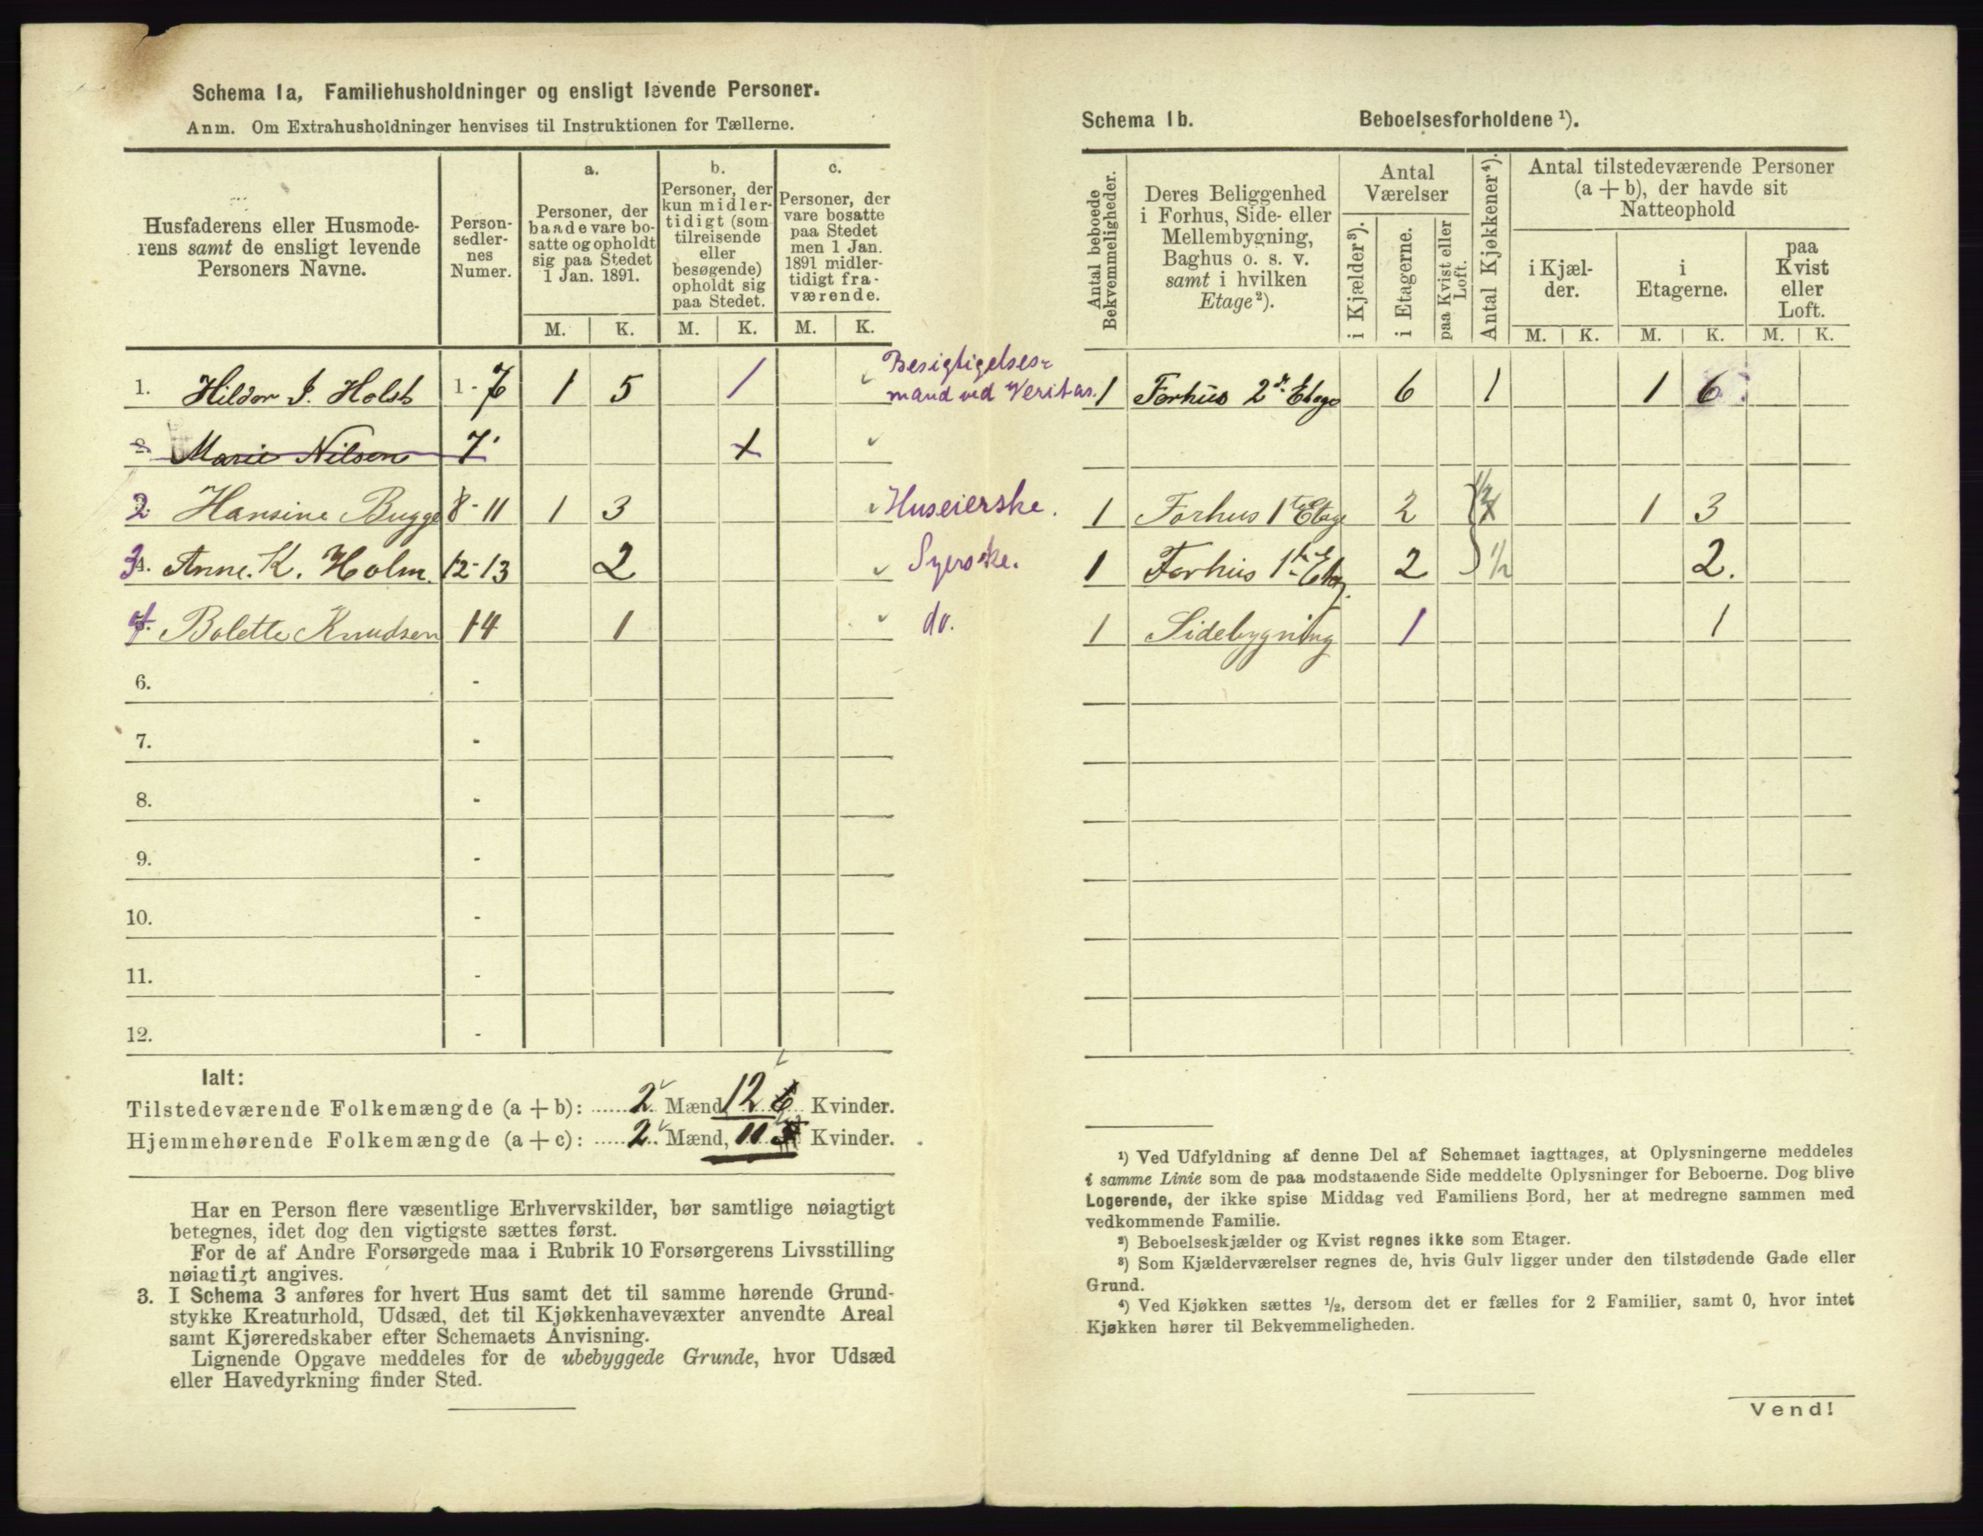 Schema 1a, Familiehusholdninger og ensligt levende Personer.
Anm. Om Extrahusholdninger henvises til Instruktionen for Tællerne.
Husfaderens eller Husmode-
rens samt de ensligt levende
Personers Navne.
Person-
sedler-
nes
Numer.
a.
Personer, der
baade vare bo-
satte og opholdt
sig paa Stedet
1 Jan. 1891.
b.
Personer, der
kun midler-
tidigt (som
tilreisende
eller
besøgende)
opholdt sig
paa Stedet.
c.
Personer, der
vare bosatte
paa Stedet
men 1 Jan.
1891 midler-
tidigt fra-
værende.
M. K. M. K. M. K.
1. Hildor J. Holst 1 - 7 1 5 1 Besigtigelses-
mand ved Veritas.
Marie Nilsen 7
2. Hansine Bugge 8 - 11 1 3 Huseierske.
3. Anne K. Holm 12 - 13 2 Syerske.
4. Bolette Knudsen 14 1 do.
6. -
7. -
8. -
9. -
10. -
11. -
12. -
Ialt:
Tilstedeværende Folkemængde (a + b): 2 Mænd 12 Kvinder.
Hjemmehørende Folkemængde (a + c): 2 Mænd, 11 Kvinder.
Har en Person flere væsentlige Erhvervskilder, bør samtlige nøiagtigt
betegnes, idet dog den vigtigste sættes først.
For de af Andre Forsørgede maa i Rubrik 10 Forsørgerens Livsstilling
nøiagtigt angives.
3. I Schema 3 anføres for hvert Hus samt det til samme hørende Grund-
stykke Kreaturhold, Udsæd, det til Kjøkkenhavevæxter anvendte Areal
samt Kjøreredskaber efter Schemaets Anvisning.
Lignende Opgave meddeles for de ubebyggede Grunde, hvor Udsæd
eller Havedyrkning finder Sted.
Schema 1b. Beboelsesforholdene ¹).
Antal beboede
Bekvemmeligheder.
Deres Beliggenhed
i Forhus, Side- eller
Mellembygning,
Baghus o. s. v.
samt i hvilken
Etage²).
Antal
Værelser
i Kjælder³).
i Etagerne.
paa Kvist eller
Loft.
Antal Kjøkkener⁴).
Antal tilstedeværende Personer
(a + b), der havde sit
Natteophold
i Kjæl-
der.
i
Etagerne.
paa
Kvist
eller
Loft.
M. K. M. K. M. K.
1 Forhus 2den Etage 6 1 1 6
1 Forhus 1ste Etage 2 1/2 1 3
1 Forhus 1ste Etag. 2 1/2 2.
1 Sidebygning 1 1
¹) Ved Udfyldning af denne Del af Schemaet iagttages, at Oplysningerne meddeles
i samme Linie som de paa modstaaende Side meddelte Oplysninger for Beboerne. Dog blive
Logerende, der ikke spise Middag ved Familiens Bord, her at medregne sammen med
vedkommende Familie.
²) Beboelseskjælder og Kvist regnes ikke som Etager.
³) Som Kjælderværelser regnes de, hvis Gulv ligger under den tilstødende Gade eller
Grund.
⁴) Ved Kjøkken sættes ½, dersom det er fælles for 2 Familier, samt 0, hvor intet
Kjøkken hører til Bekvemmeligheden.
Vend!